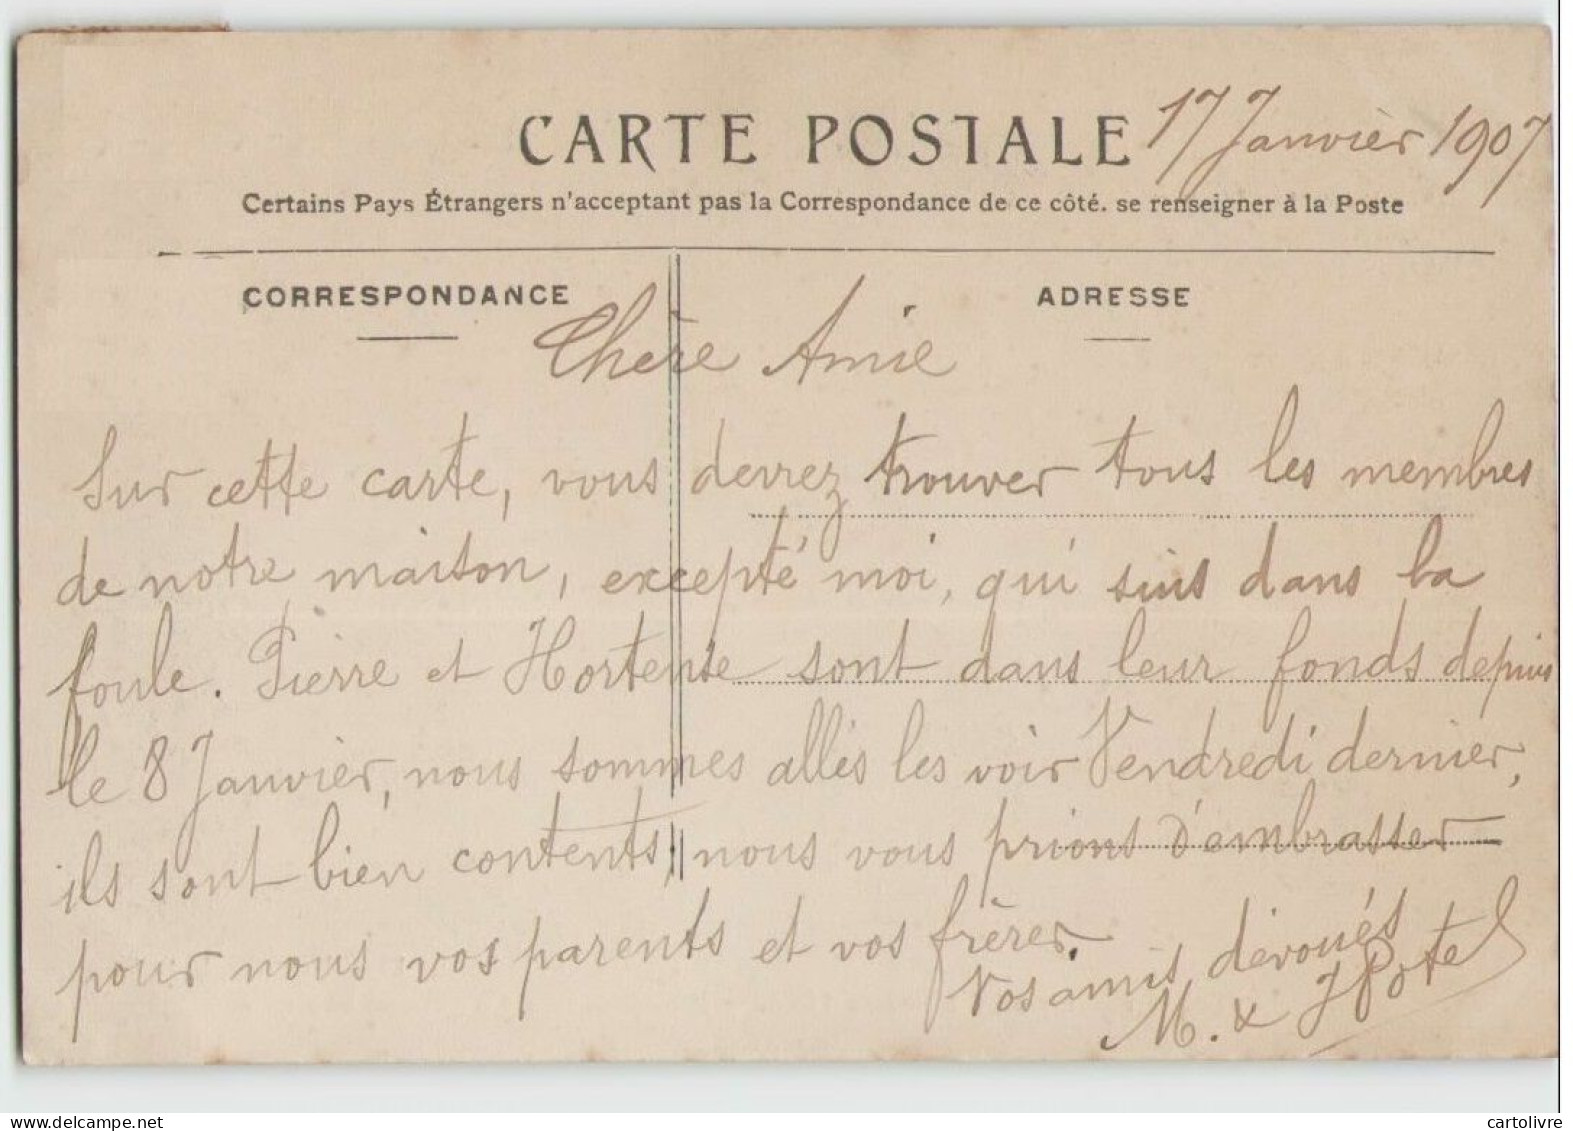 CARTE POSTALE 17 Janvièr 1907
Certains Pays Étrangers n'acceptant pas la Correspondance de ce côté. se renseigner à la Poste
CORRESPONDANCE ADRESSE
Chère Amie
Sur cette carte, vous devrez trouver tous les membres
de notre maison, excepté moi, qui suis dans la
foule. Pierre et Hortense sont dans leur fonds depuis
le 8 Janvier, nous sommes allés les voir Vendredi dernier,
ils sont bien contents, nous vous prions d'embrasser
pour nous vos parents et vos frères.
Vos amis dévoués
M. & J Potel
cartolivre